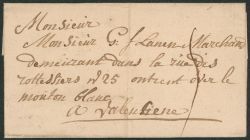 Monsieur
Monsieur G. J. Lanen Marchand
demeurant dans la rue des
rottessers n 25 ontrent d'ier le
mouton blanc
a Valensiene